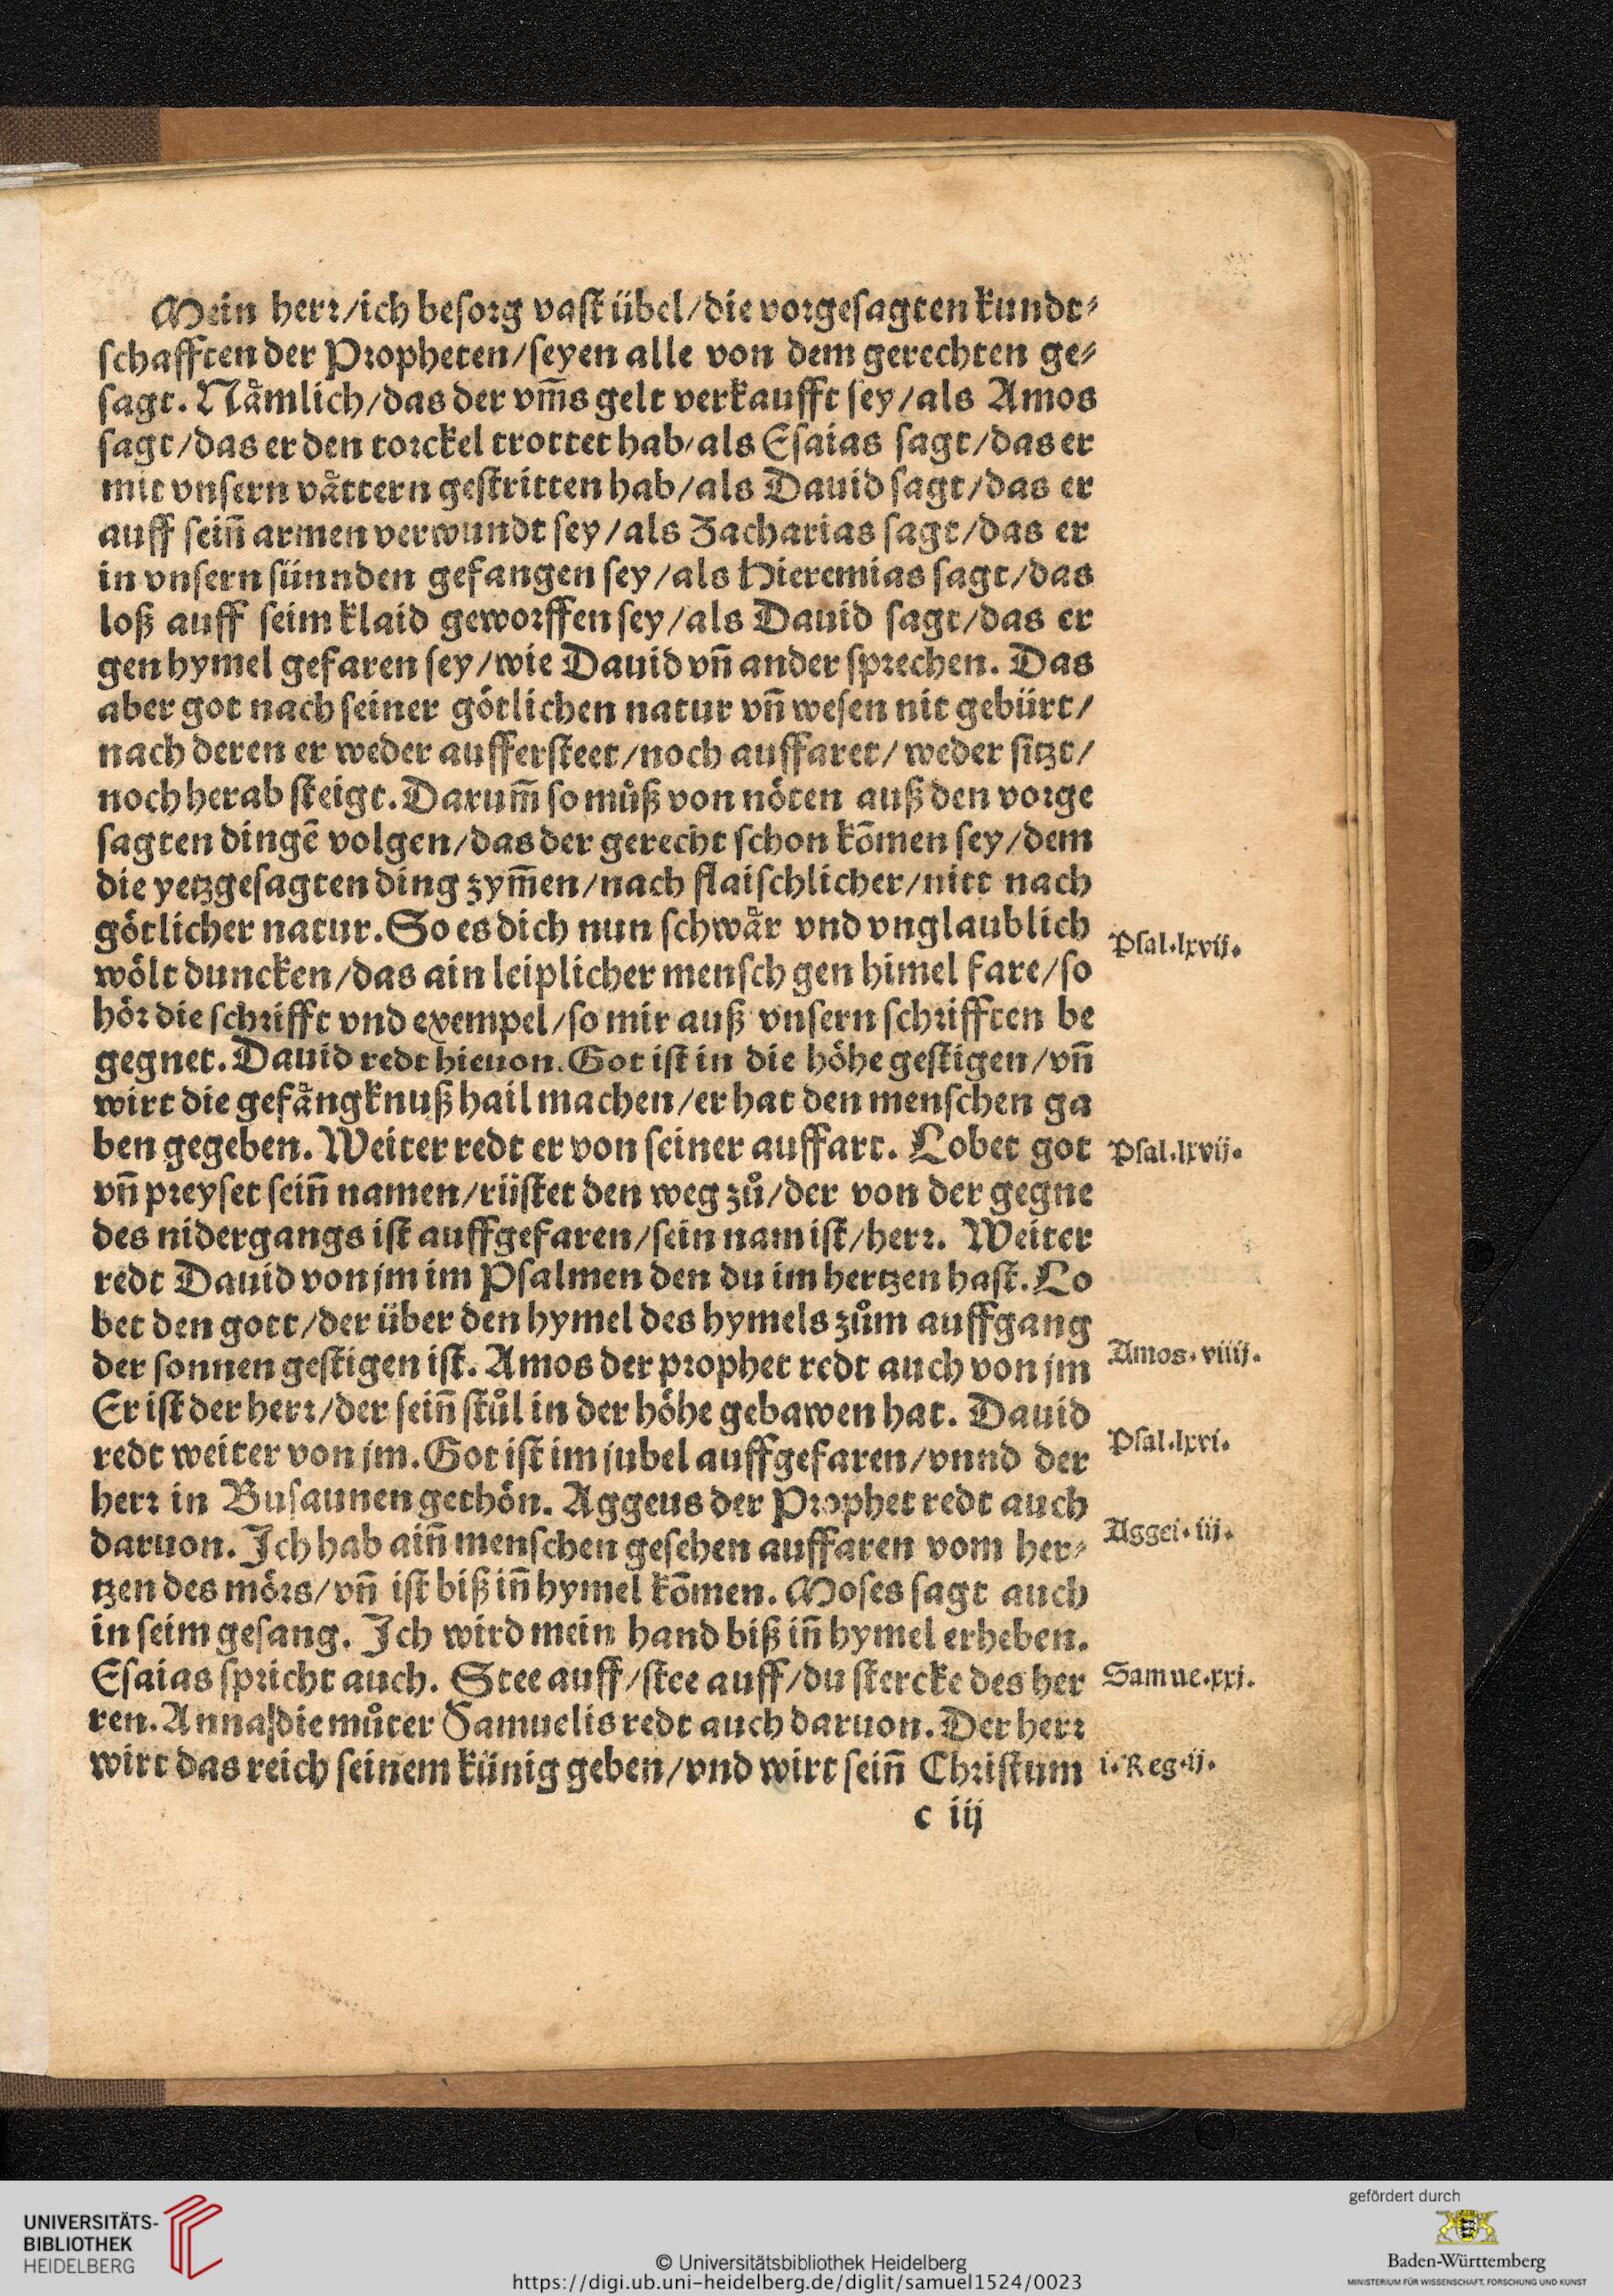 Mein herꝛ/ich besoꝛg vast übel/die voꝛgesagten kundt⸗
schafften der Pꝛopheten/seyen alle von dem gerechten ge⸗
sagt. Naͤmlich/das der vm̄s gelt verkaufft sey/als Amos
sagt/das er den toꝛckel trottet hab/als Esaias sagt/das er
mit vnsern vaͤttern gestritten hab/als Dauid sagt/das er
auff sein̄ armen verwundt sey/als Zacharias sagt/das er
in vnsern sünnden gefangen sey/als Hieremias sagt/das
loß auff seim klaid gewoꝛffen sey/als Dauid sagt/das er
gen hymel gefaren sey/wie Dauid vn̄ ander spꝛechen. Das
aber got nach seiner götlichen natur vn̄ wesen nit gebürt/
nach deren er weder auffersteet/noch auffaret/ weder sitzt/
noch herab steigt. Darum̄ so můß von nöten auß den voꝛge
sagten dingē volgen/das der gerecht schon kōmen sey/dem
die yetzgesagten ding zym̄en/nach flaischlicher/nitt nach
götlicher natur. So es dich nun schwaͤr vnd vnglaublich
wölt duncken/das ain leiplicher mensch gen himel fare/so
höꝛ die schꝛifft vnd exempel/so mir auß vnsern schꝛifften be
gegnet. Dauid redt hieuon. Got ist in die höhe gestigen/vn̄
wirt die gefaͤngknuß hail machen/er hat den menschen ga
ben gegeben. Weiter redt er von seiner auffart. Lobet got
vn̄ pꝛeyset sein̄ namen/rüstet den weg zů/der von der gegne
des nidergangs ist auffgefaren/sein nam ist/herꝛ. Weiter
redt Dauid von jm im Psalmen den du im hertzen hast. Lo
bet den gott/der über den hymel des hymels zům auffgang
der sonnen gestigen ist. Amos der pꝛophet redt auch von jm
Er ist der herꝛ/der sein̄ stůl in der höhe gebawen hat. Dauid
redt weiter von jm. Got ist im jubel auffgefaren/vnnd der
herꝛ in Busaunen gethön. Aggeus der Pꝛophet redt auch
daruon. Ich hab ain̄ menschen gesehen auffaren vom her⸗
tzen des möꝛs/vn̄ ist biß in̄ hymel kōmen. Moses sagt auch
in seim gesang. Ich wird mein hand biß in̄ hymel erheben.
Esaias spꝛicht auch. Stee auff/stee auff/du stercke des her
ren. Anna/die můter Samuelis redt auch daruon. Der herꝛ
wirt das reich seinem künig geben/vnd wirt sein̄ Chꝛistum
c iij
Psal.lxvij.
Psal.lxvij.
Amos.viiij.
Psal.lxxi.
Aggei.iij.
Samue.xxj.
i.Reg.ij.
UNIVERSITÄTS-
BIBLIOTHEK
HEIDELBERG
© Universitätsbibliothek Heidelberg
https://digi.ub.uni-heidelberg.de/diglit/samuel1524/0023
gefördert durch
Baden-Württemberg
MINISTERIUM FÜR WISSENSCHAFT, FORSCHUNG UND KUNST